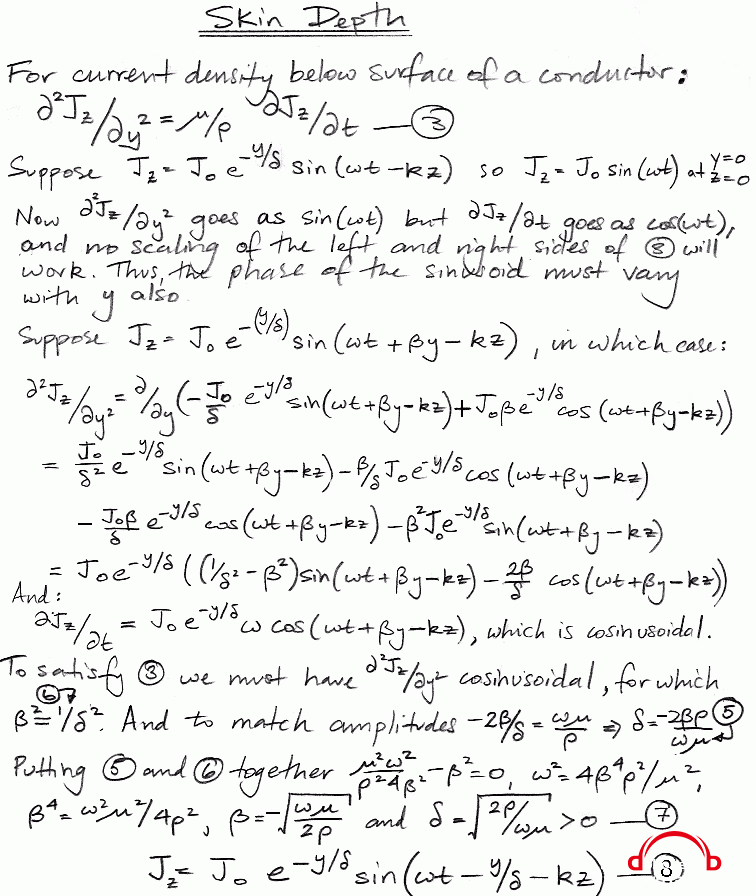 Skin Depth
For current density below surface of a conductor:
∂²Jz/∂y² = μ/ρ ∂Jz/∂t — ③
Suppose Jz = J₀ e^(-y/δ) sin(ωt - kz) so Jz = J₀ sin(ωt) at y=0 z=0
Now ∂²Jz/∂y² goes as sin(ωt) but ∂Jz/∂t goes as cos(ωt),
and no scaling of the left and right sides of ③ will
work. Thus, the phase of the sinusoid must vary
with y also
Suppose Jz = J₀ e^-(y/δ) sin(ωt + βy - kz), in which case:
∂²Jz/∂y² = ∂/∂y(-J₀/δ e^(-y/δ) sin(ωt+βy-kz) + J₀βe^(-y/δ) cos(ωt+βy-kz))
= J₀/δ² e^(-y/δ) sin(ωt+βy-kz) - β/δ J₀e^(-y/δ) cos(ωt+βy-kz)
- J₀β/δ e^(-y/δ) cos(ωt+βy-kz) - β²J₀e^(-y/δ) sin(ωt+βy-kz)
= J₀e^(-y/δ) ((1/δ² - β²)sin(ωt+βy-kz) - 2β/δ cos(ωt+βy-kz))
And:
∂Jz/∂t = J₀e^(-y/δ) ω cos(ωt+βy-kz), which is cosinusoidal.
To satisfy ③ we must have ∂²Jz/∂y² cosinusoidal, for which
⑥⑦
β² = 1/δ². And to match amplitudes -2β/δ = ωμ/ρ ⇒ δ = -2βρ/ωμ ⑤
Putting ⑤ and ⑥ together μ²ω²/ρ²4β² - β² = 0, ω² = 4β⁴ρ²/μ²,
β⁴ = ω²μ²/4ρ², β = -√(ωμ/2ρ) and δ = √(2ρ/ωμ) > 0 — ⑦
Jz = J₀ e^(-y/δ) sin(ωt - y/δ - kz) — ⑧